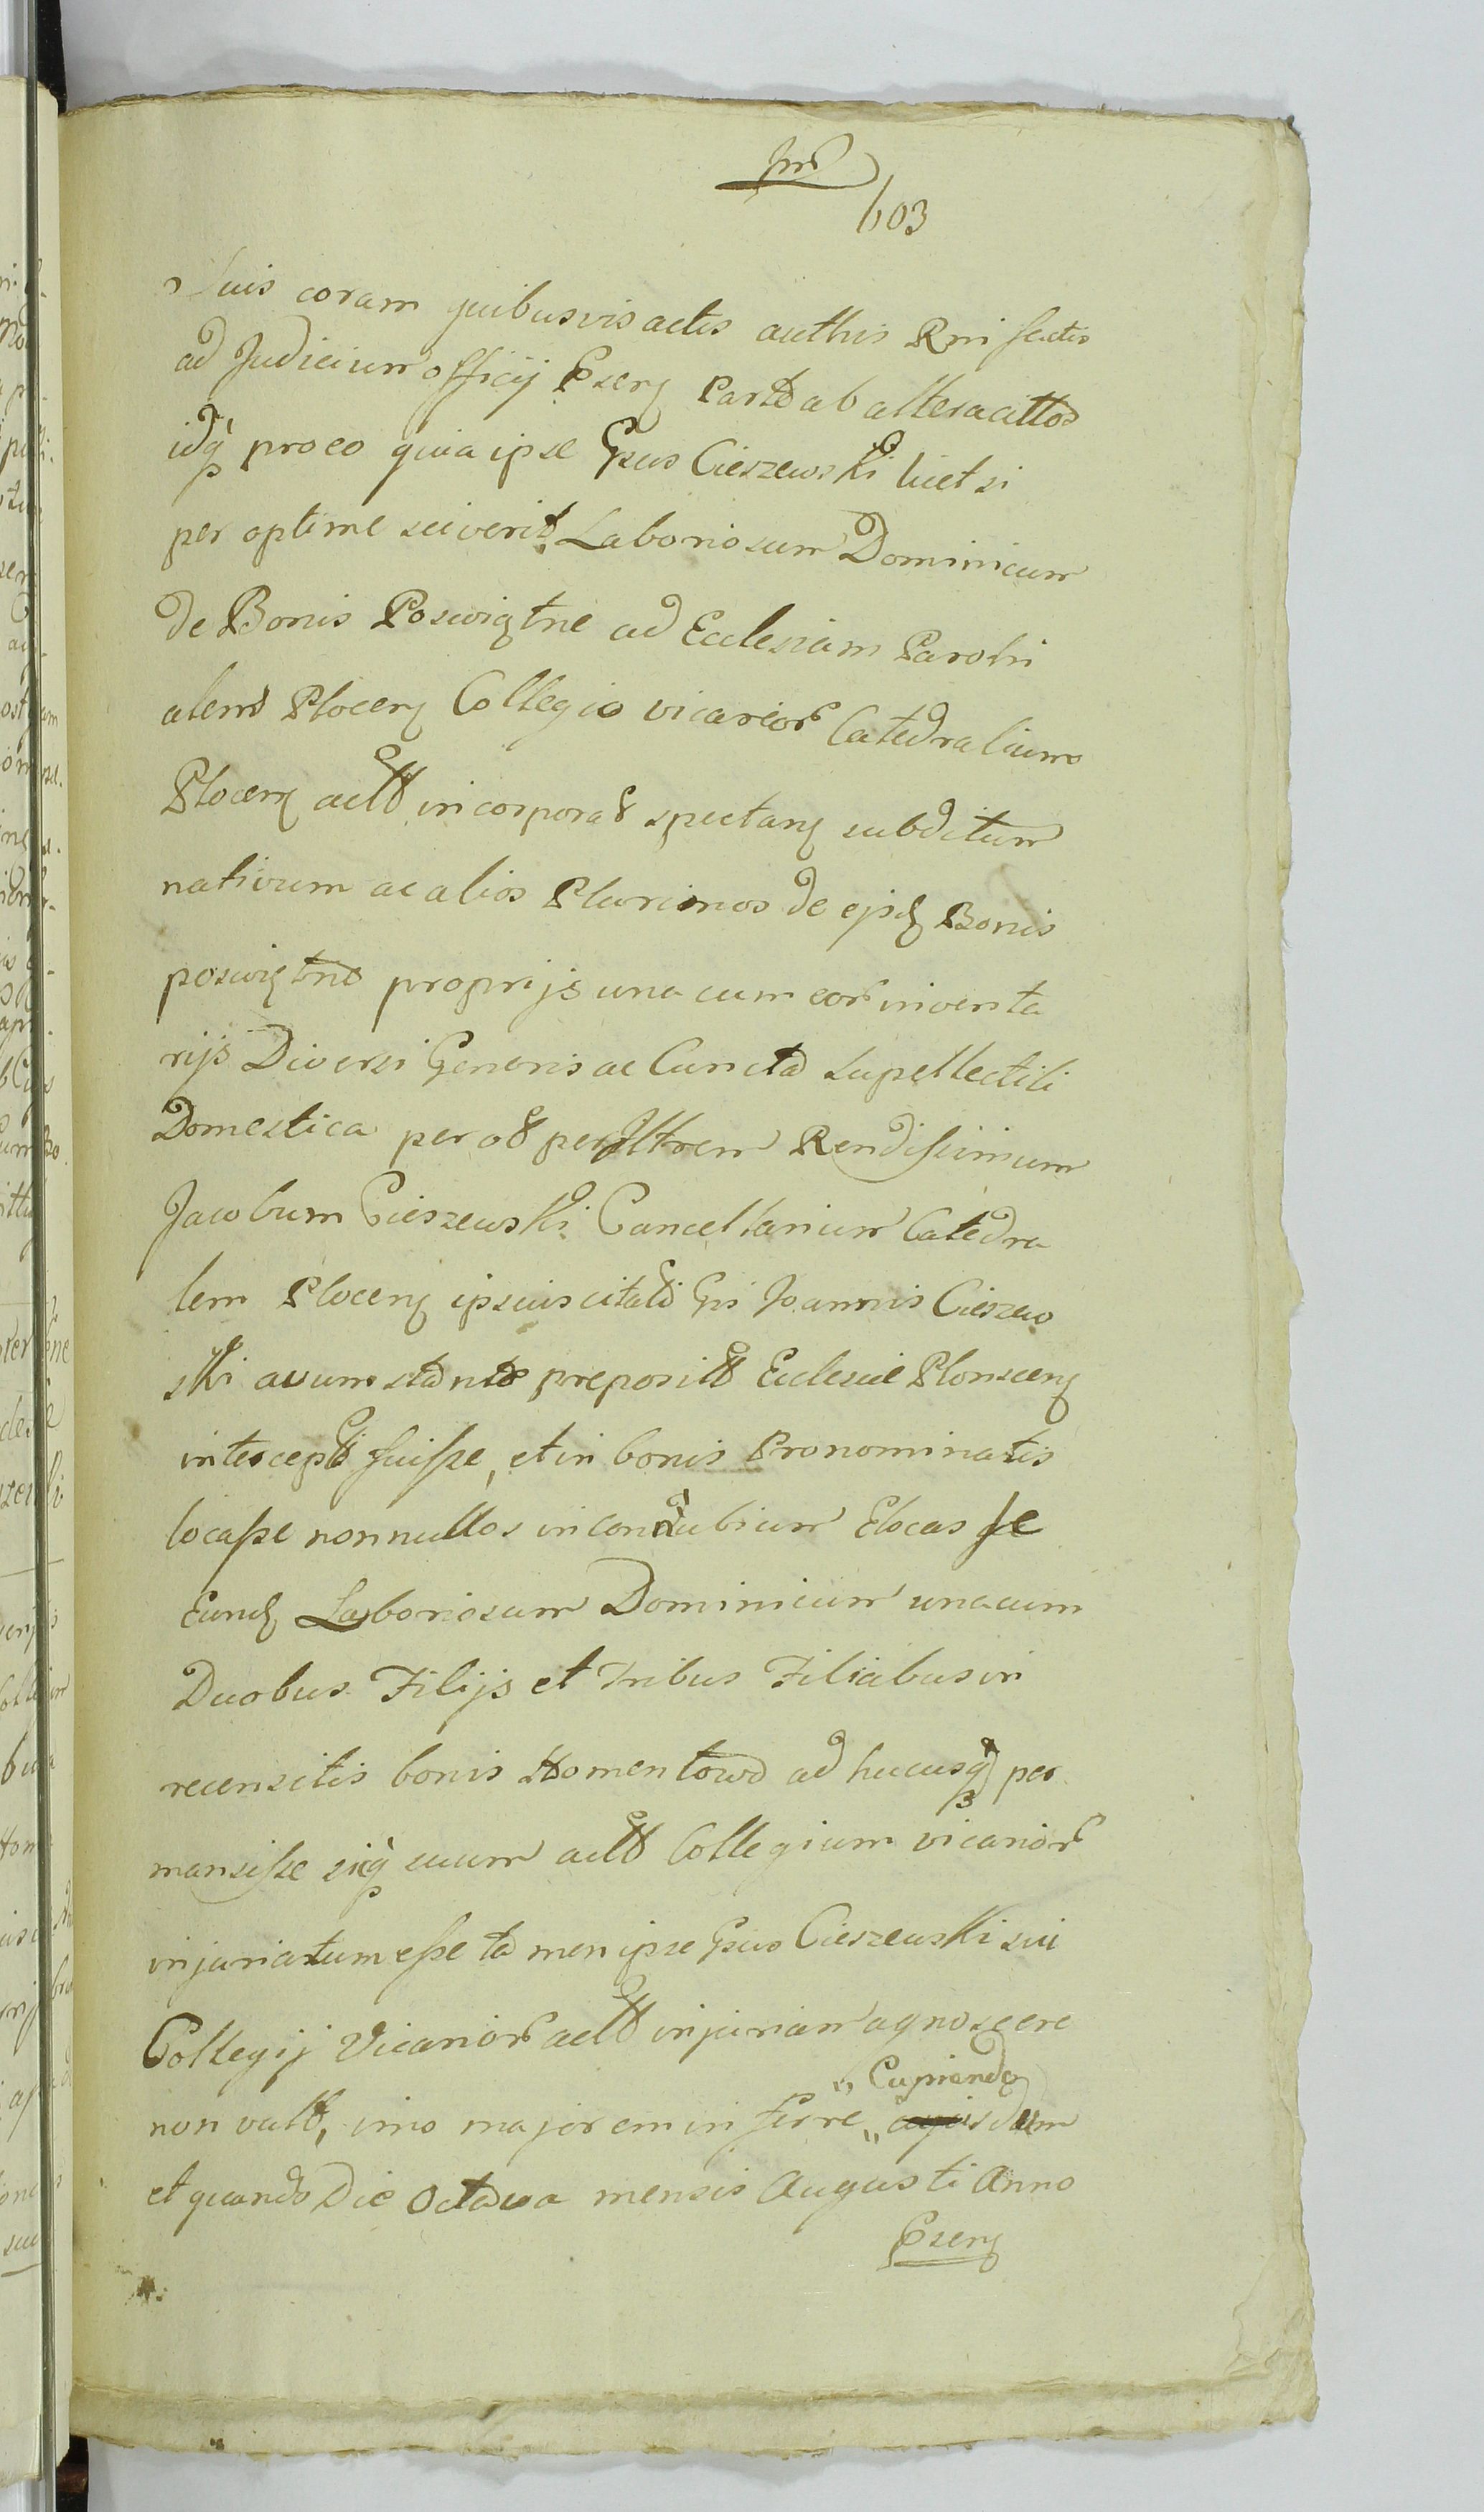 603
suis coram quibusvis actis authis Rni factis
ad Judicium officij Psens Parte ab altera cittos
idq pro eo quia ipse Gsus Cieszewski licet si
per optime sciverit Laboriosum Dominicum
de Bonis Poswiętne ad Ecclesiam Parohi
alem Plocens Collegio vicarior Catedralium
Plocens actt incorporat spectans subditum
nativum ac alios Plurimos de ejsd Bonis
poswiętne proprijs una cum eor inventa
rijs Diversi Generis ac Cuncta supellectili
Domestica per ol perIlltrem Rendissimum
Jacobum Cieszewski Cancellarium Catedra
lem Plocens ipsius citati Gsi Joannis Cieszew
ski avum stante preposit Ecclesie Plonscens
intercept fuisse, et in bonis Pronominatis
locasse nonnullos in connubium Elocasse
Eund Laboriosum Dominicum una cum
Duobus Filijs et Tribus Filiabus in
recensitis bonis Homentowo ad hucusq per
mansisse sicq suum actt Collegium vicarior
injuriatum esse tamen ipse Gsus Cieszewski sui
Collegij Vicarior actt injuriam agnoscere
non vult, imo majorem inferre „ Cupiendo
et quando Die Octava mensis Augusti Anno
Psens